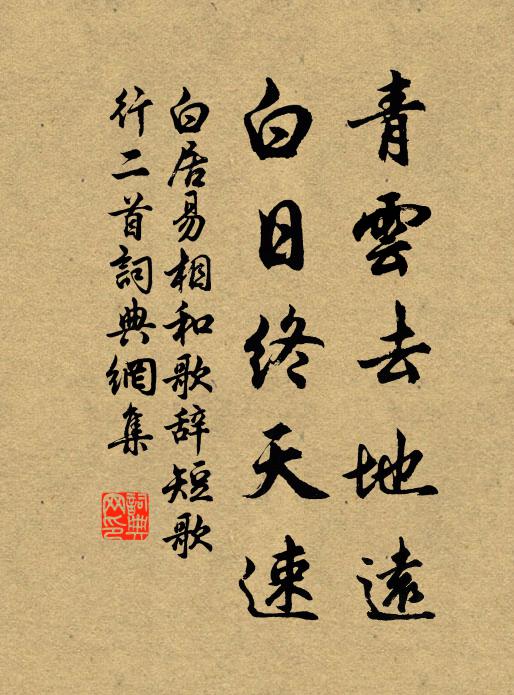 青雲去地遠
白日终天速
白居易相和歌辞短歌
行二首詞典網集
詞典网印